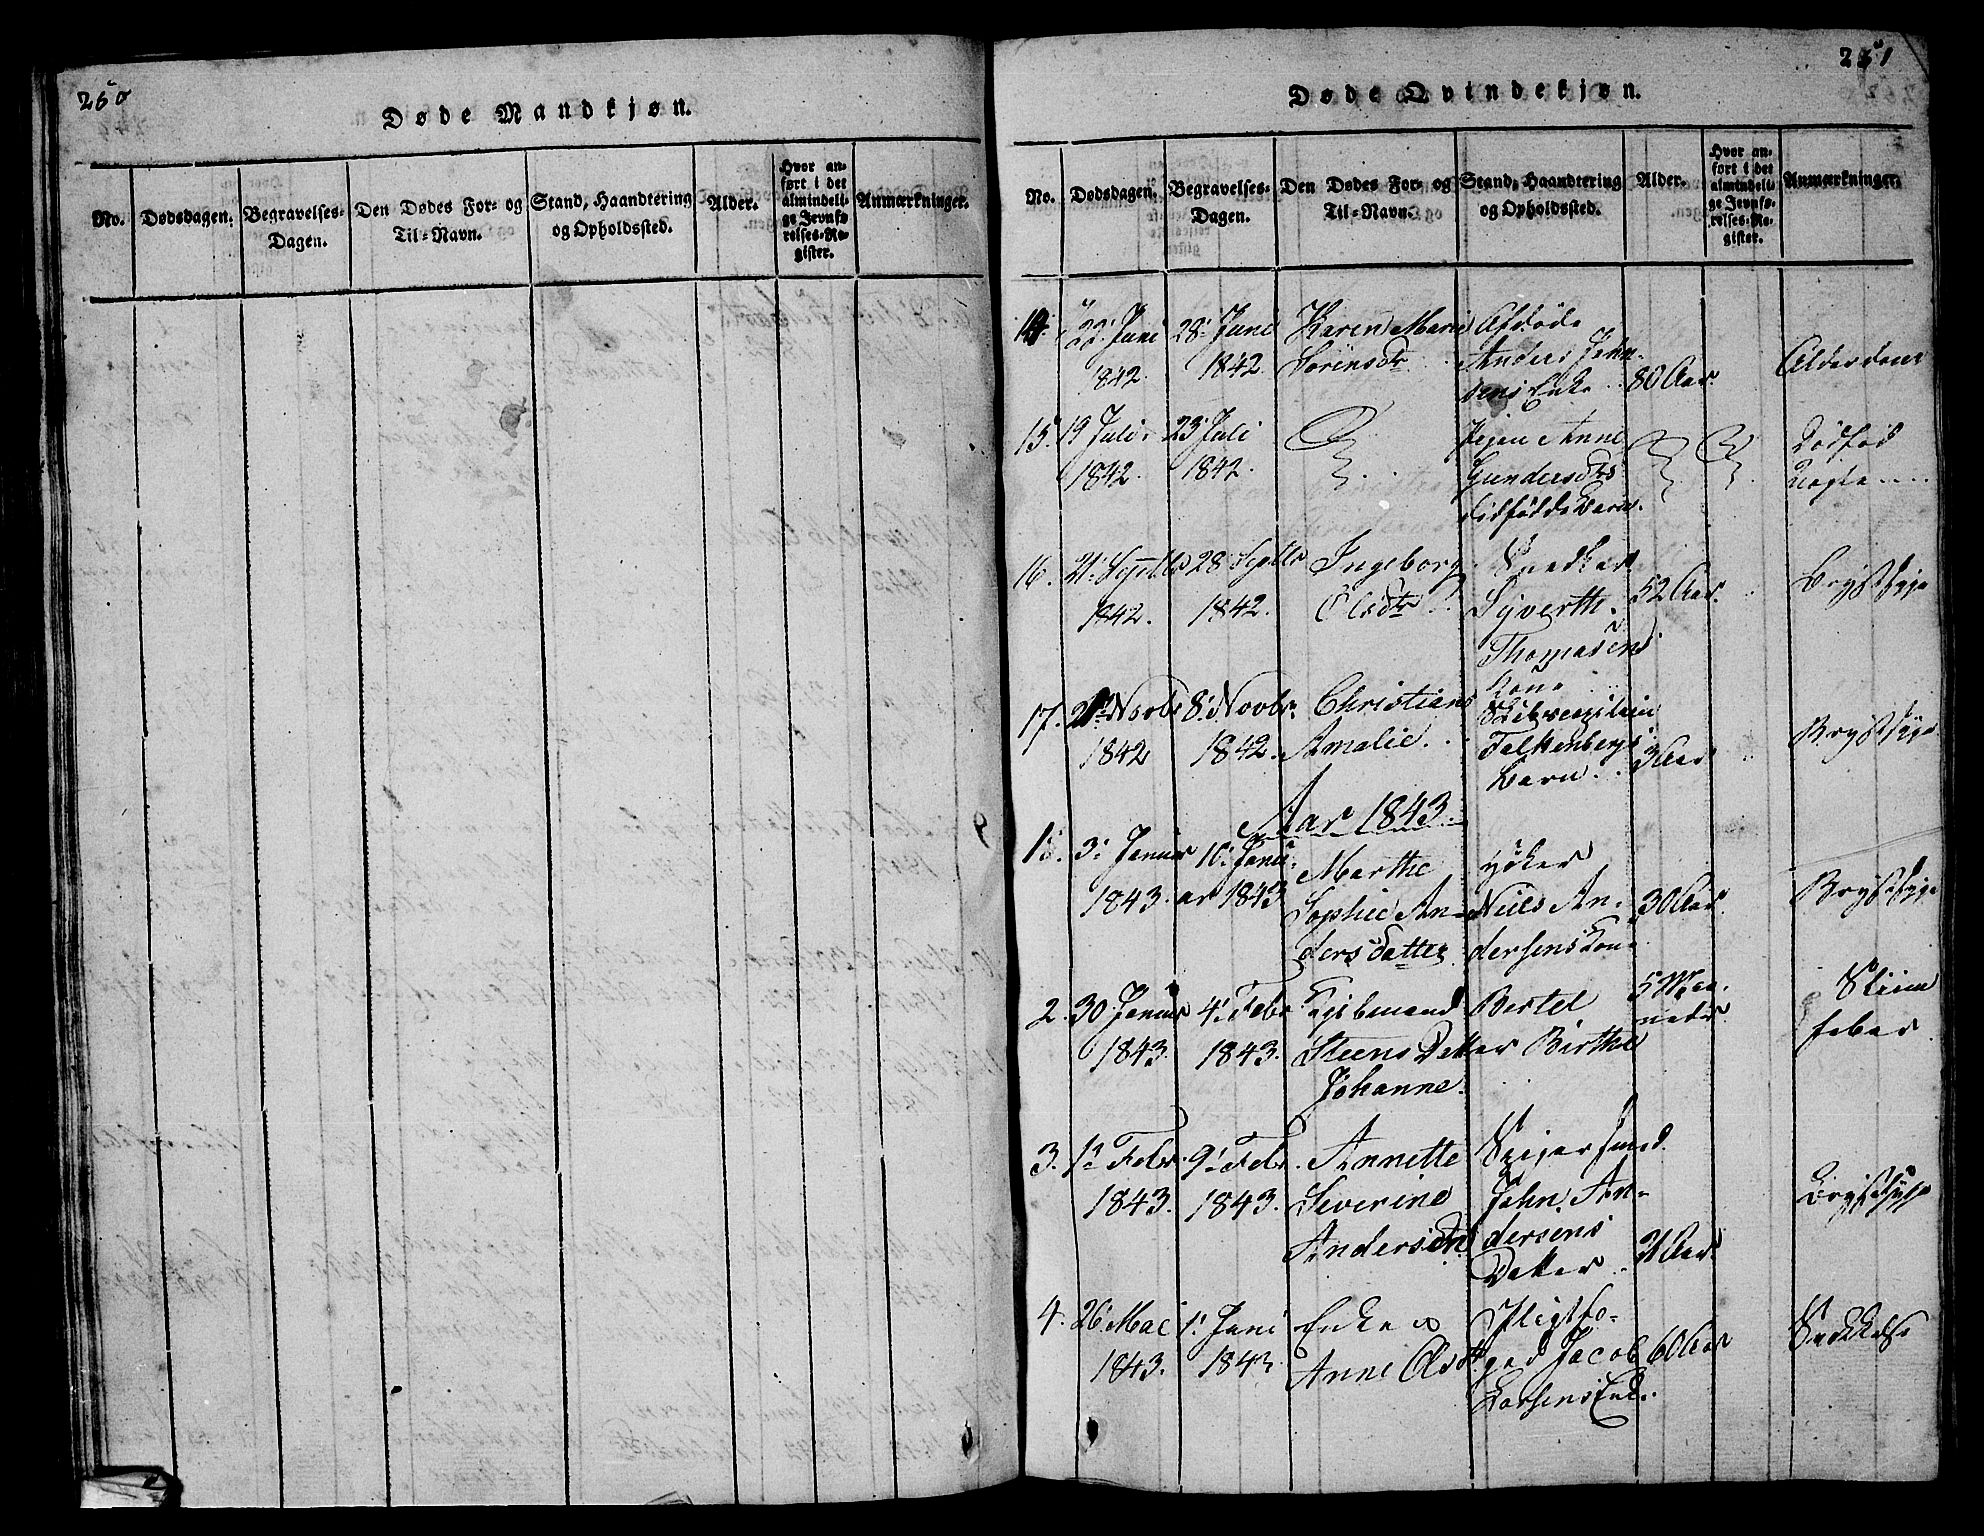 250
Døde Mandkjøn.
No. Dødsdagen. Begravelses-Dagen. Den Dødes For- og Til-Navn. Stand, Haandtering og Opholdssted. Alder. Hvor anført i det almindelige Jevnførelses-Register. Anmærkninger.
251
Døde Qvindekjøn.
No. Dødsdagen. Begravelses-Dagen. Den Dødes For- og Til-Navn. Stand, Haandtering og Opholdssted. Alder. Hvor anført i det almindelige Jevnførelses-Register. Anmærkninger.
14. 22 Juni 28. Juni Karen Marie Afdøde
1842. 1842 Sørensdr Anders John-
sens Enke 80 Aar. Alderdom
15. 19 Juli 23 Juli Pigen Anne Dødfød
1842. 1842. Gundersdtrs
dødfødde Barn.
16. 21. Septbr 28 Septbr Ingeborg Snedker
1842. 1842. Olsdtr Syverth 52 Aar. Brystsyge
Thomasens
Kone
17. Novbr 8. Novbr. Christiane
1842 1842. Amalie. Falkenbergs 3 Aar Brystsyge
Barn
Aar 1843.
1. 3. Januar 10. Janu- Marthe Høker
1843. ar 1843 Sophie An- Niels An- 30 Aar. Brystsyge
dersdatter dersens Kone
2. 30 Januar 4. Febr Bertel 5 Maa- Sliim
1843. 1843. Steens Datter Birthe neder feber
Johanne.
3. 1. Febr. 9. Febr. Annette
1843. 1843. Severine John An- Brystsyge
Andersdtr dersens
Datter 21 Aar.
4. 26. Mai 1. Juni Enke Pligtfo-
1843. 1843 Anne Olsdtr ged Jacob 60 Aar
Larsens Enke.